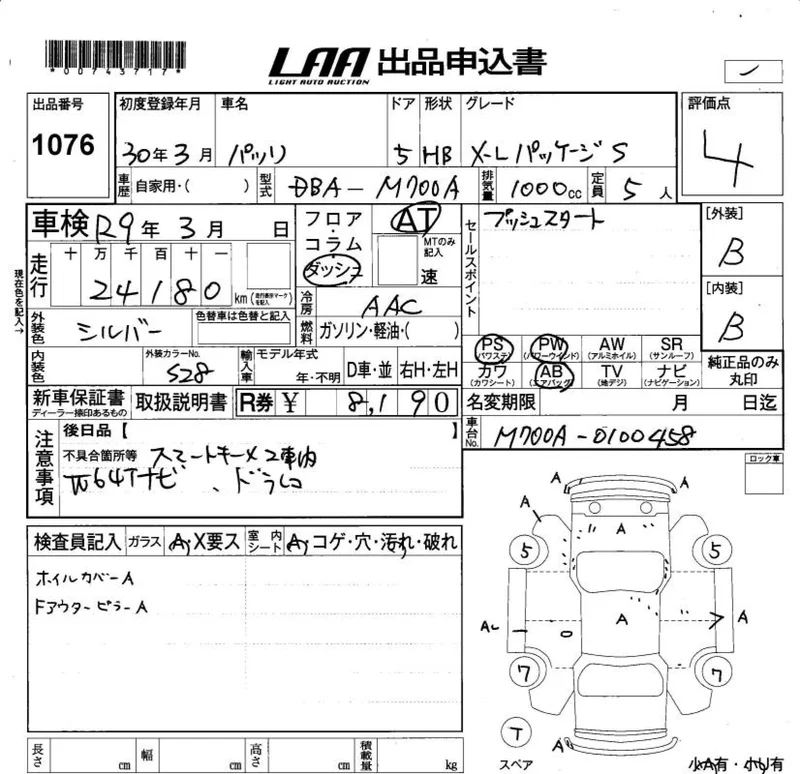 *00743717*
LAA 出品申込書
LIGHT AUTO AUCTION
出品番号 初度登録年月 車名 ドア 形状 グレード 評価点
1076 30年3月 パッソ 5 HB X-Lパッケージ S 4
車歴 自家用・( ) 型式 DBA-M700A 排気量 1000cc 定員 5人
車検 R9年 3月 日
フロア・コラム・ダッシュ AT MTのみ記入 速
セールスポイント プッシュスタート
[外装] B
現在色を記入→
走行 十 万 千 百 十 一
24180 km (走行表示マークを記入)
冷房 AAC
[内装] B
外装色 シルバー 色替車は色替と記入
燃料 ガソリン・軽油・( )
PS (パワステ) PW (パワーウインド) AW (アルミホイル) SR (サンルーフ)
カワ (カワシート) AB (エアバッグ) TV (地デジ) ナビ (ナビゲーション)
純正品のみ丸印
内装色 外装カラーNo. S28 輸入車 モデル年式 年・不明 D車・並 右H・左H
新車保証書 ディーラー捺印あるもの 取扱説明書 R券 ¥ 8,190
名変期限 月 日迄
車台No. M700A-0100458
注意事項
後日品【 】
不具合箇所等 スマートキーメ2車内
W64Tナビ、ドラレコ
ロック車
検査員記入 ガラス A,X要ス 室内シート A,コゲ・穴・汚れ・破れ
ホイルカバーA
FアウターピラーA
A A
A A
5 5
A A A
7 7
T
スペア
A
長さ cm 幅 cm 高さ cm 積載量 kg
小A有・小U有